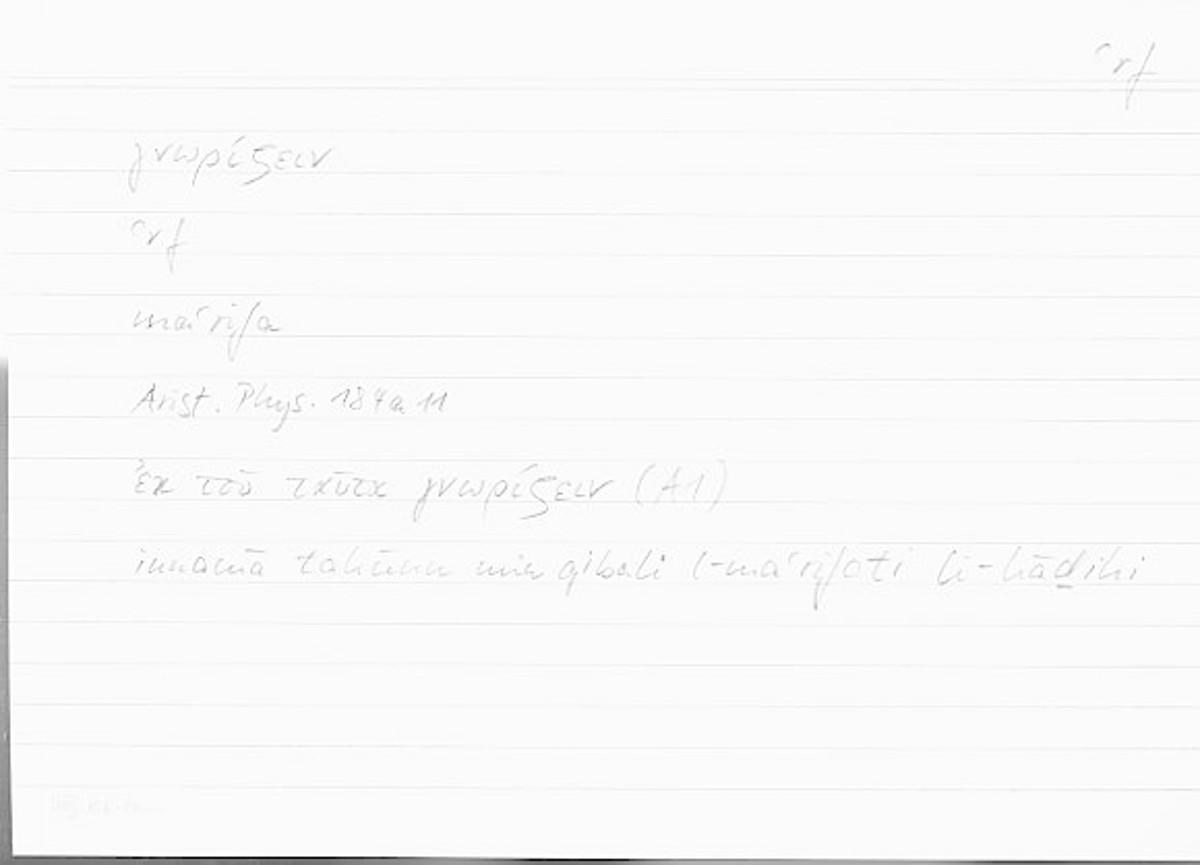 ʿrf
γνωρίζειν
ʿrf
maʿrifa
Arist. Phys. 184a11
ἐκ τοῦ ταῦτα γνωρίζειν (A1)
innamā takūnu min qibali l-maʿrifati li-hāḏihi